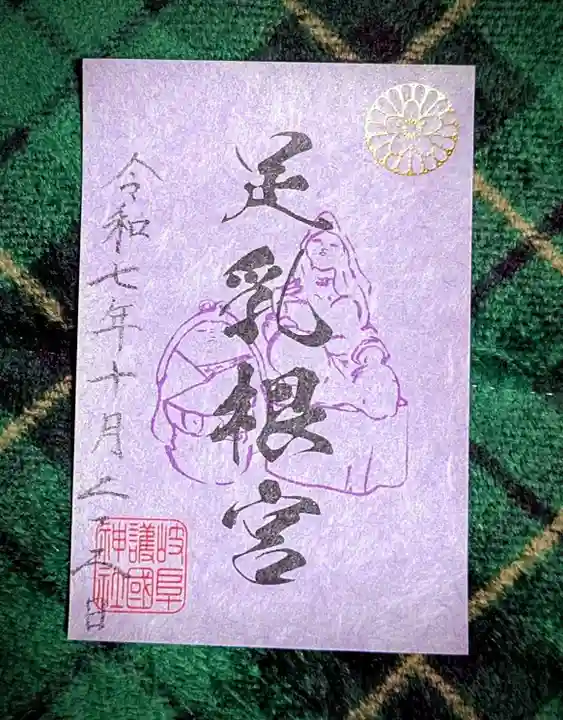 足乳根宮
令和七年十月二十六日
岐阜
護國
神社